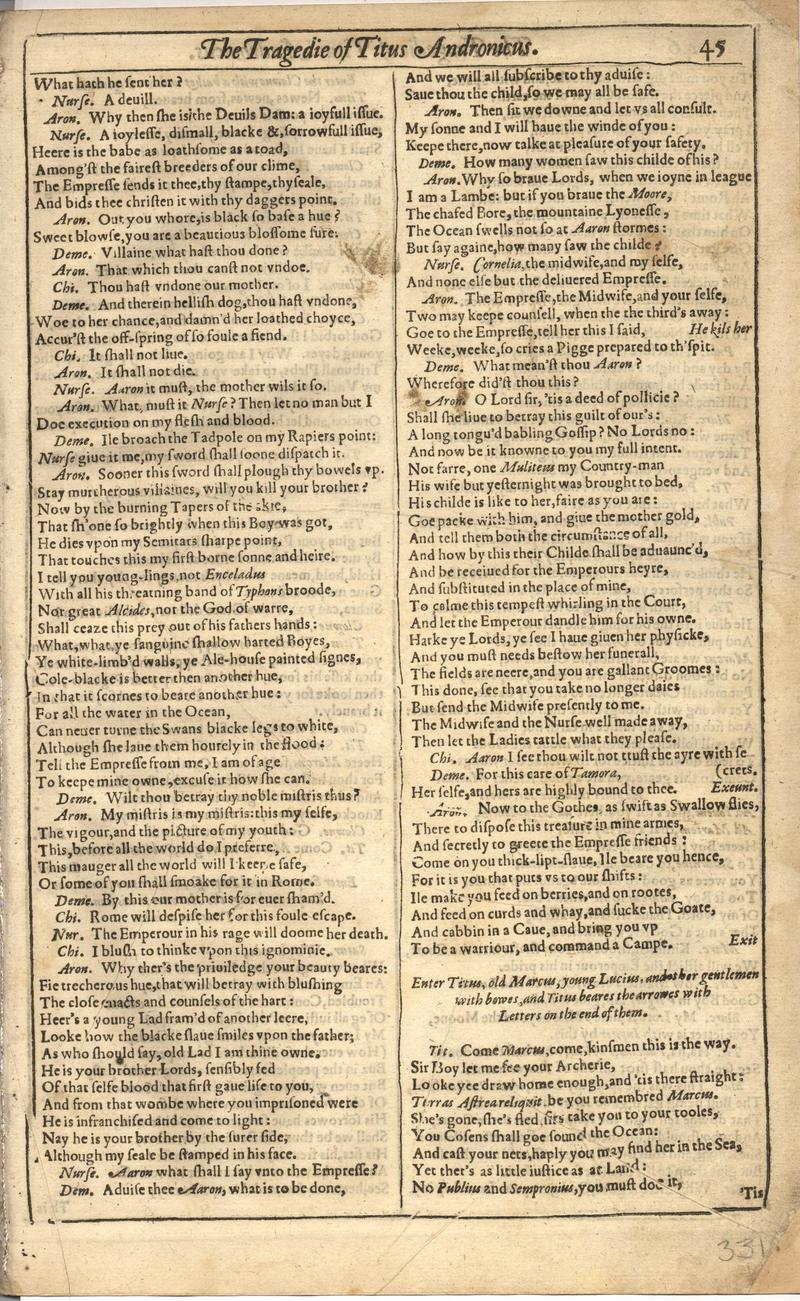 The Tragedie of Titus Andronicus. 45
What hath he sent her?
Nurse. A deuill.
Aron. Why then she is the Deuils Dam: a ioyfull issue.
Nurse. A ioylesse, dismall, blacke &, sorrowfull issue,
Heere is the babe as loathsome as a toad,
Among'st the fairest breeders of our clime,
The Empresse sends it thee, thy stampe, thy seale,
And bids thee christen it with thy daggers point.
Aron. Out you whore, is black so base a hue?
Sweet blowse, you are a beautious blossome sure.
Deme. Villaine what hast thou done?
Aron. That which thou canst not vndoe.
Chi. Thou hast vndone our mother.
Deme. And therein hellish dog, thou hast vndone,
Woe to her chance, and damn'd her loathed choyce,
Accur'st the off-spring of so foule a fiend.
Chi. It shall not liue.
Aron. It shall not die.
Nurse. Aaron it must, the mother wils it so.
Aron. What, must it Nurse? Then let no man but I
Doe execution on my flesh and blood.
Deme. Ile broach the Tadpole on my Rapiers point:
Nurse giue it me, my sword shall soone dispatch it.
Aron. Sooner this sword shall plough thy bowels vp.
Stay murtherous villaines, will you kill your brother?
Now by the burning Tapers of the skie,
That sh'one so brightly when this Boy was got,
He dies vpon my Semitars sharpe point,
That touches this my first borne sonne and heire.
I tell you young-lings, not Enceladus
With all his threatning band of Typhons broode,
Nor great Alcides, nor the God of warre,
Shall ceaze this prey out of his fathers hands:
What, what, ye sanguine shallow harted Boyes,
Ye white-limb'd walls, ye Ale-house painted signes,
Cole-blacke is better then another hue,
In that it scornes to beare another hue:
For all the water in the Ocean,
Can neuer turne the Swans blacke legs to white,
Although she laue them hourely in the flood:
Tell the Empresse from me, I am of age
To keepe mine owne, excuse it how she can.
Deme. Wilt thou betray thy noble mistris thus?
Aron. My mistris is my mistris: this my selfe,
The vigour, and the picture of my youth:
This, before all the world do I preferre,
This mauger all the world will I keepe safe,
Or some of you shall smoake for it in Rome.
Deme. By this our mother is for euer sham'd.
Chi. Rome will despise her for this foule escape.
Nur. The Emperour in his rage will doome her death.
Chi. I blush to thinke vpon this ignominie.
Aron. Why ther's the priuiledge your beauty beares:
Fie trecherous hue, that will betray with blushing
The close enacts and counsels of the hart:
Heer's a young Lad fram'd of another leere,
Looke how the blacke slaue smiles vpon the father;
As who should say, old Lad I am thine owne.
He is your brother Lords, sensibly fed
Of that selfe blood that first gaue life to you,
And from that wombe where you imprisoned were
He is infranchised and come to light:
Nay he is your brother by the surer side,
Although my seale be stamped in his face.
Nurse. Aaron what shall I say vnto the Empresse?
Dem. Aduise thee Aaron, what is to be done,
And we will all subscribe to thy aduise:
Saue thou the child, so we may all be safe.
Aron. Then sit we downe and let vs all consult.
My sonne and I will haue the winde of you:
Keepe there, now talke at pleasure of your safety.
Deme. How many women saw this childe of his?
Aron. Why so braue Lords, when we ioyne in league
I am a Lambe: but if you braue the Moore,
The chafed Bore, the mountaine Lyonesse,
The Ocean swells not so at Aaron stormes:
But say againe, how many saw the childe?
Nurse. Cornelia, the midwife, and my selfe,
And none else but the deliuered Empresse.
Aron. The Empresse, the Midwife, and your selfe,
Two may keepe counsell, when the third's away:
Goe to the Empresse, tell her this I said, He kils her
Weeke, weeke, so cries a Pigge prepared to th'spit.
Deme. What mean'st thou Aaron?
Wherefore did'st thou this?
Aron. O Lord sir, 'tis a deed of pollicie?
Shall she liue to betray this guilt of our's:
A long tongu'd babling Gossip? No Lords no:
And now be it knowne to you my full intent.
Not farre, one Muliteus my Country-man
His wife but yesternight was brought to bed,
His childe is like to her, faire as you are:
Goe packe with him, and giue the mother gold,
And tell them both the circumstance of all,
And how by this their Childe shall be aduaunc'd,
And be receiued for the Emperours heyre,
And substituted in the place of mine,
To calme this tempest whirling in the Court,
And let the Emperour dandle him for his owne.
Harke ye Lords, ye see I haue giuen her physicke,
And you must needs bestow her funerall,
The fields are neere, and you are gallant Groomes:
This done, see that you take no longer daies
But send the Midwife presently to me.
The Midwife and the Nurse well made away,
Then let the Ladies tattle what they please.
Chi. Aaron I see thou wilt not ttust the ayre with se
Deme. For this care of Tamora, (crets.
Her selfe, and hers are highly bound to thee. Exeunt.
Aron. Now to the Gothes, as swift as Swallow flies,
There to dispose this treasure in mine armes,
And secretly to greete the Empresse friends:
Come on you thick-lipt-slaue, Ile beare you hence,
For it is you that puts vs to our shifts:
Ile make you feed on berries, and on rootes,
And feed on curds and whay, and sucke the Goate,
And cabbin in a Caue, and bring you vp
To be a warriour, and command a Campe. Exit
Enter Titus, old Marcus, young Lucius, and other gentlemen
with bowes, and Titus beares the arrowes with
Letters on the end of them.
Tit. Come Marcus, come, kinsmen this is the way.
Sir Boy let me see your Archerie,
Looke yee draw home enough, and 'tis there straight:
Terras Astrea reliquit, be you remembred Marcus.
She's gone, she's fled, sirs take you to your tooles,
You Cosens shall goe sound the Ocean:
And cast your nets, haply you may find her in the Sea,
Yet ther's as little iustice as at Land:
No Publius and Sempronius, you must doe it,
'Tis
331